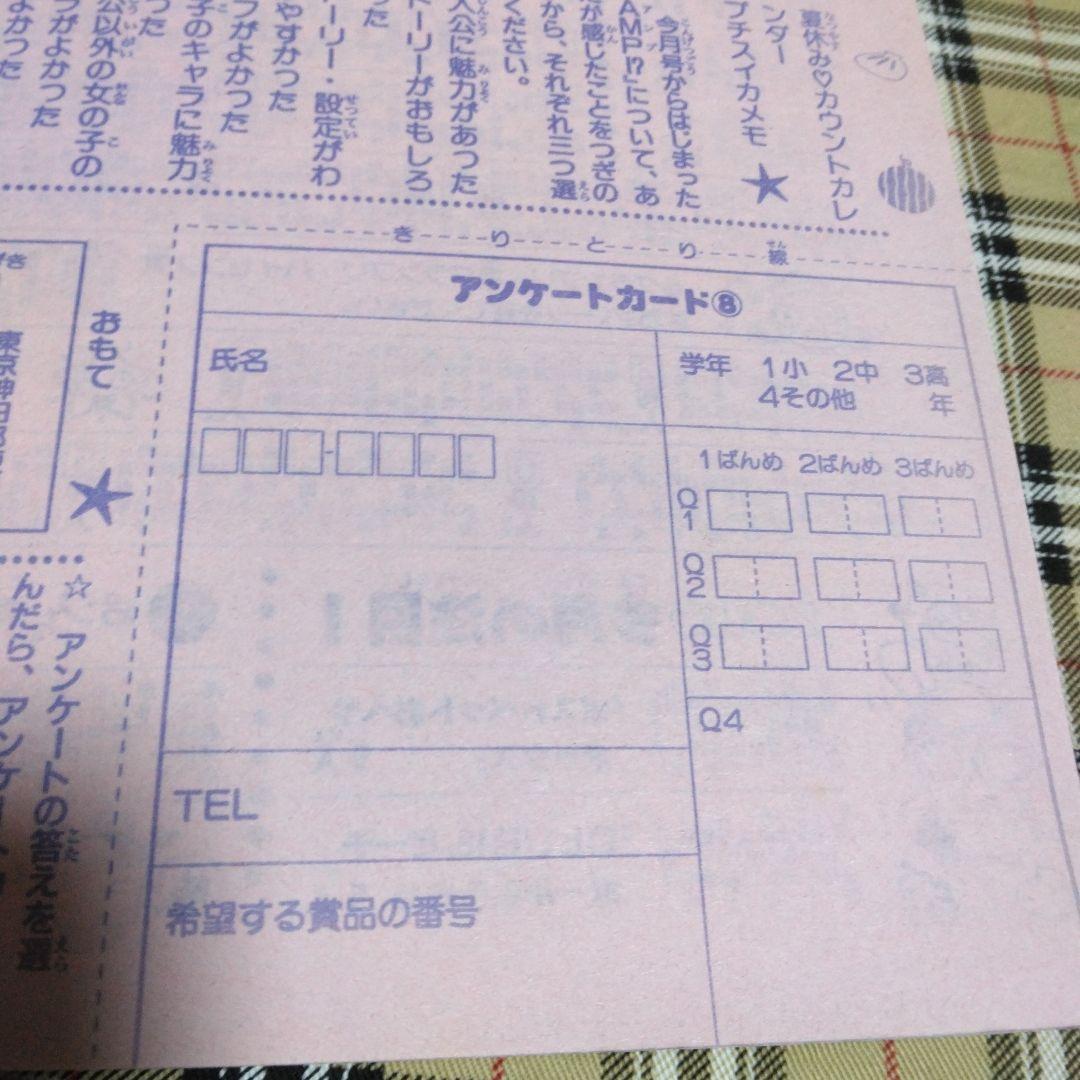 夏休み♡カウントカレ
ンダー
プチスイカメモ
今月号からはじまった
AMP!?」について、あ
が感じたことをつぎの
から、それぞれ三つ選
ください。
人公に魅力があった
トーリーがおもしろ
った
ーリー・設定がわ
やすかった
がよかった
子のキャラに魅力
った
公以外の女の子の
がよかった
よかった
きりとり線
アンケートカード⑧
氏名
学年 1小 2中 3高
4その他 年
1ばんめ 2ばんめ 3ばんめ
Q1
Q2
Q3
Q4
TEL
希望する賞品の番号
おもて
東京神田
☆ アンケートの答えを選
んだら、アンケー